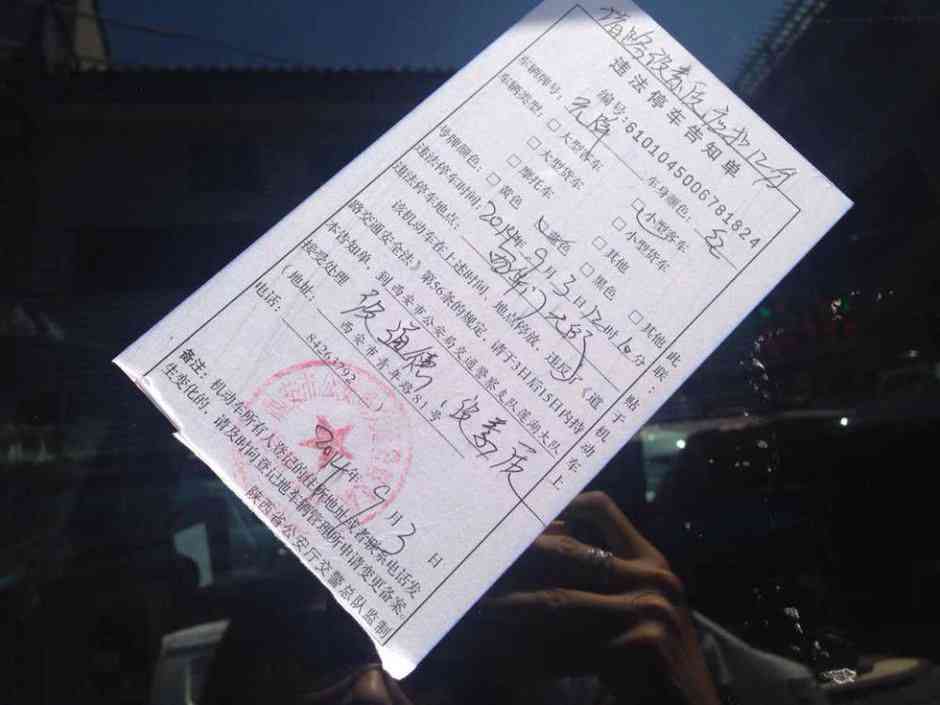 违法停车告知单
编号:6101045006781824
车辆牌号: 无牌 车身颜色: 红
车辆类型: □大型客车 □小型客车
□大型货车 □小型货车
□摩托车 □其他
号牌颜色: □黄色 □蓝色 □黑色 □其他
违法停车时间: 2014年9月3日12时10分
违法停车地点:
该机动车在上述时间、地点停放,违反了《道
路交通安全法》第56条的规定,请于3日后15日内持
本告知单,到西安市公安局交通警察支队莲湖大队
接受处理
(地址: 西安市青年路81号)
电话: 84263792
2014年9月3日
备注: 机动车所有人登记的住所地址或者联系电话发
生变化的,请及时向登记地车辆管理所申请变更备案。
陕西省公安厅交警总队监制
此联:贴于机动车上